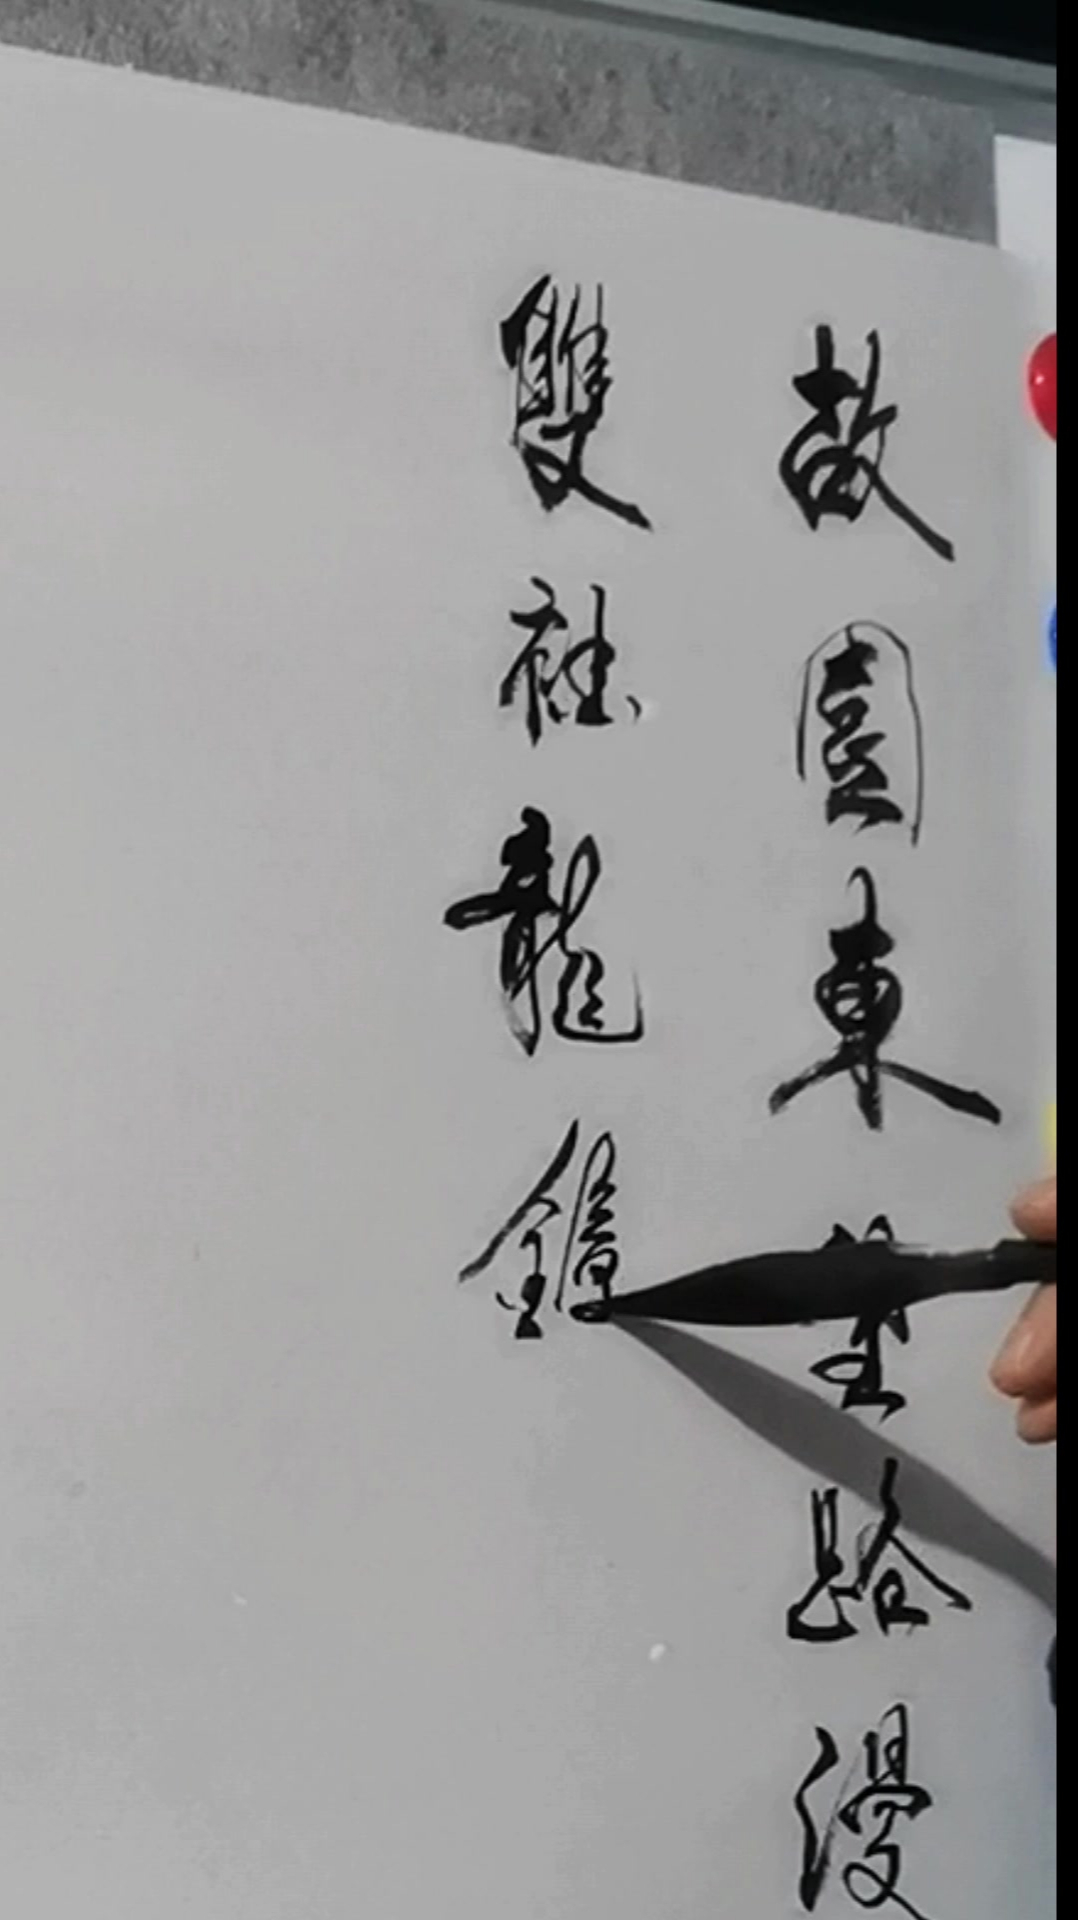 故園東望路漫
雙袖龍鍾